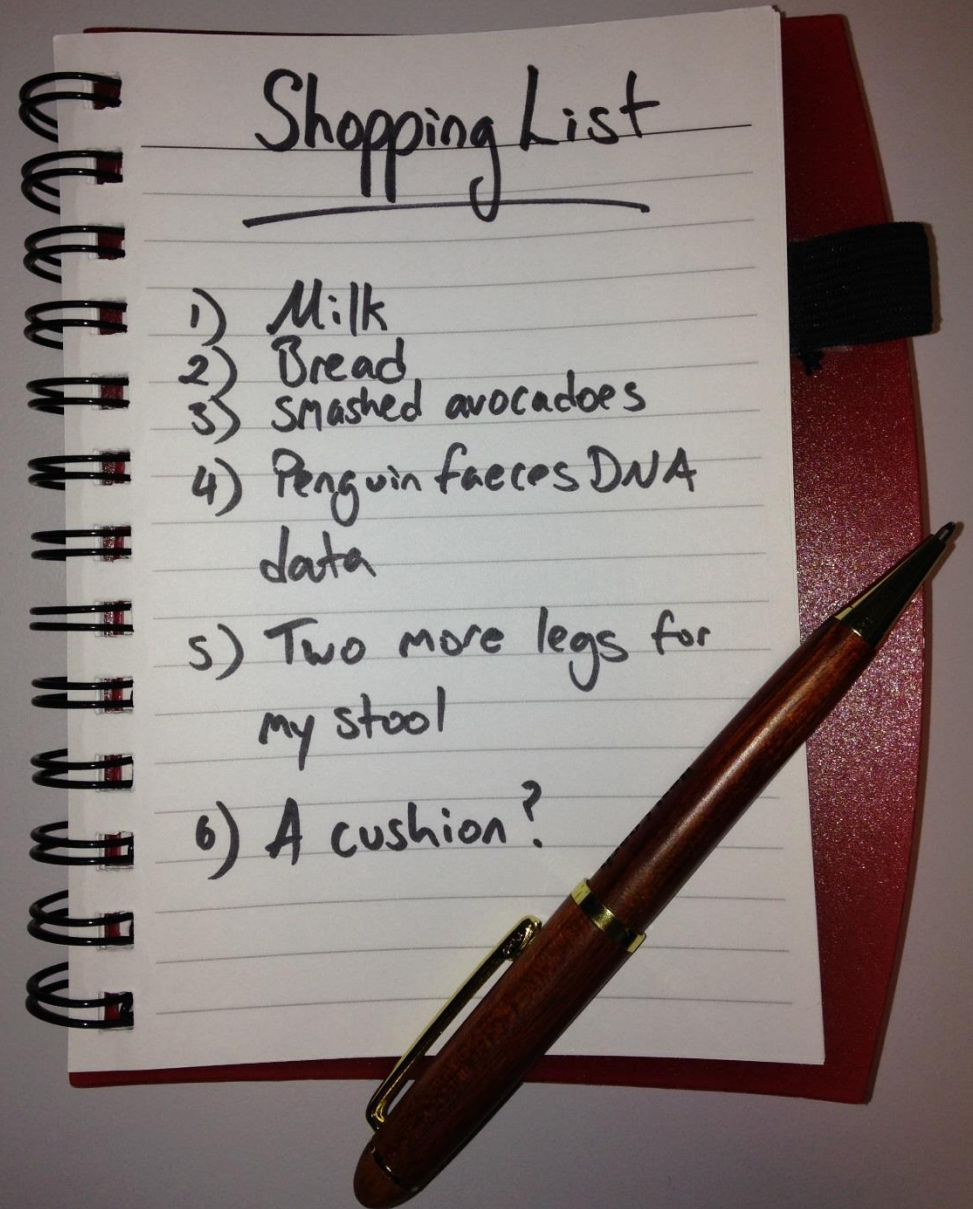 Shopping List
1) Milk
2) Bread
3) smashed avocadoes
4) Penguin faeces DNA
data
5) Two more legs for
my stool
6) A cushion?